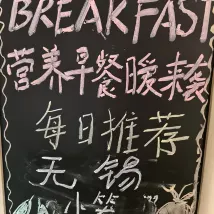 BREAKFAST
营养早餐暖来袭
每日推荐
无锡
小笼